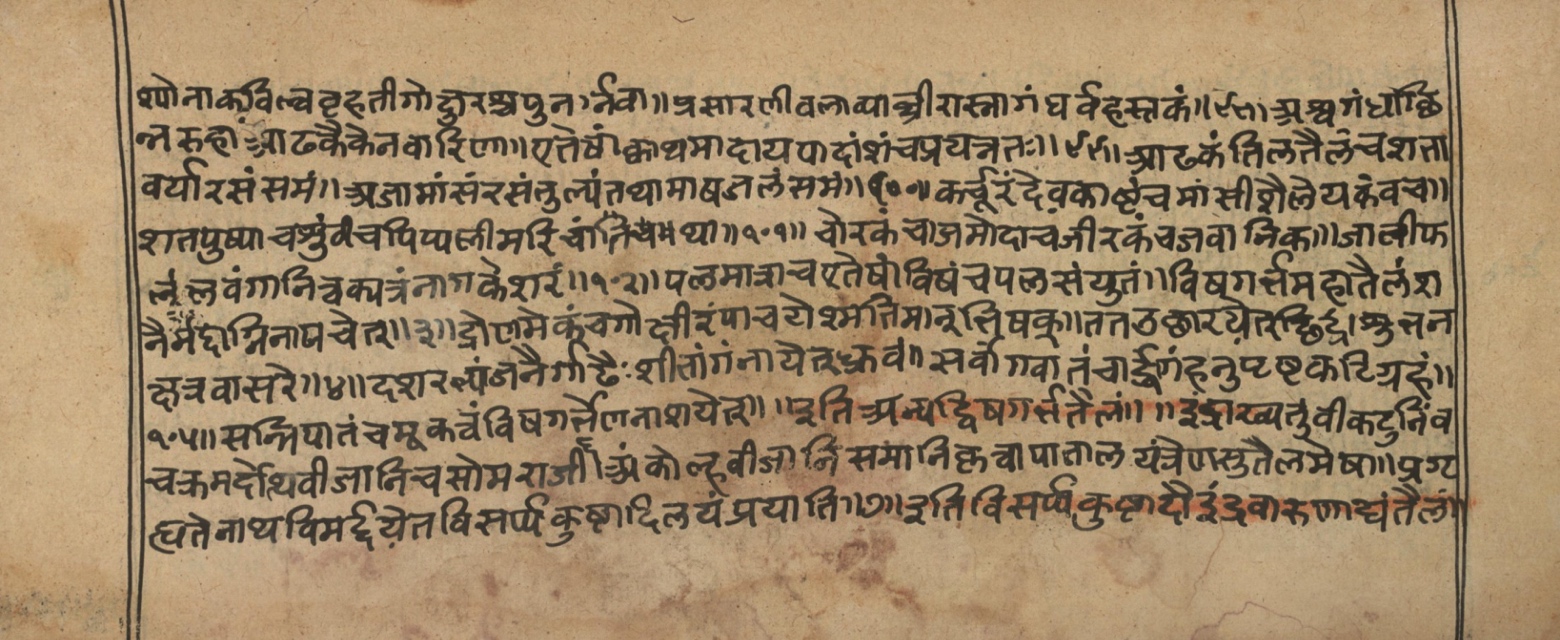 श्योनाकविल्वबृहतीगोक्षुरश्चपुनर्नवा॥ प्रसारणीवलाव्याघ्रीरास्नागंधर्वहस्तकं॥९८॥ अश्वगंधाछि
न्नरुहां आढकैकेनवारिणा॥ एतेषां क्वाथमादायपादांशंचप्रयत्नतः॥९९॥ आढकं तिलतैलंचशता
वर्यारसंसमं॥ अजामांसंरसंतुल्यंतथामाषजलंसमं॥१००॥ कर्चूरंदेवकाष्ठंचमांसीशैलेयकंवचा॥
शतपुष्पाचशुंठीचपिप्पलीमरिचं तथा॥१०१॥ चोरकंचाजमोदाचजीरकंचजवानिका॥ जातीफ
लंलवंगानित्वक्पत्रंनागकेशरं॥१०२॥ पलमात्राचएतेषांविषंचपलसंयुतं॥ विषगर्त्तमहातैलंश
नैर्मंदाग्निनापचेत्॥३॥ द्रोणमेकंचगोक्षीरंपाचये मतिमान्भिषक्॥ ततउत्तारयेत् शुभन
क्षत्रवासरे॥४॥ दश र्गाढैः शीतांगंनाशयेत्ध्रुवं॥ सर्वांगवातं हनुपृष्टकटिग्रहं॥
१०५॥ सन्निपातंचमूकत्वंविषगर्त्तेणनाशयेत्॥ इतिअन्यद्विषगर्त्ततैलं॥ ॥ इंद्राख्यतुंवीकटुनिंव
चक्रमर्दोत्थवीजानिचसोमराजी॥ अंकोल्हवीजानिसमानिकृत्वापातालयंत्रेणसुतैलमेषा॥ प्रगृ
ह्यतेनाथविमर्द्दयेतविसर्प्पकुष्ठादिलयंप्रयाति॥७॥ इतिविसर्प्पकुष्ठादौइंद्रवारुणाद्यंतैलं॥